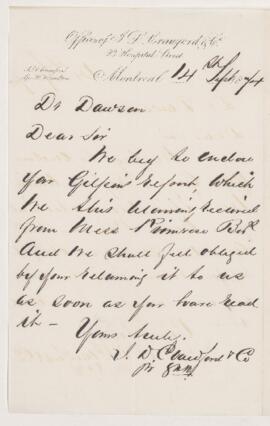 Office of J. D. Crawford & Co.
Hospital Street
Montreal 14th Sept 1874
Dr Dawson
Dear Sir
We beg to enclose
you Gilpin's report, which
We this morning received
from Mess Primrose Bros
And we shall feel obliged
by your returning it to us
as soon as you have read
it -
Yours truly
J. D. Crawford & Co
pr